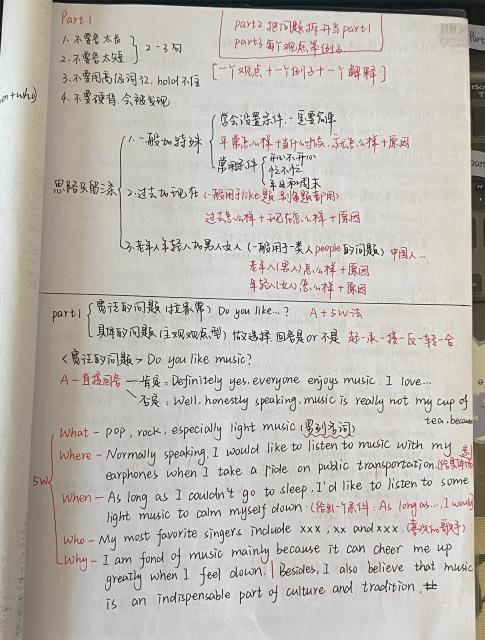 Part 1
1. 不要答太长
2. 不要答太短
2-3句
3. 不要用高级词汇, hold不住
4. 不要硬背, 会被发现
part2 把问题拆开当part1
part3 每个观点举例子
[一个观点+一个例子+一个解释]
en+who)
思路只留三条
1. 一般加特殊
学会设置条件, 一定要简单
平常怎么样+当什么时候, 就怎么样+原因
常用条件
开心不开心
忙不忙
平日和周末
2. 过去加现在 (一般用于like题, 别的题都用)
过去怎么样+现在怎么样+原因
3. 老年人年轻人加男人女人 (一般用于一类人people的问题) 中国人...
老年人(男人)怎么样+原因
年轻人(女人)怎么样+原因
part1
宽泛的问题 (拉家常) Do you like...? A+5W法
具体的问题 (主观观点型) 做选择 回答是or不是 起-承-接-反-转-合
<宽泛的问题> Do you like music?
A-直接回答 — 肯定: Definitely yes, everyone enjoys music. I love...
否定: Well, honestly speaking, music is really not my cup of
tea, because
5W
What - pop, rock, especially light music (罗列名词)
Where - Normally speaking, I would like to listen to music with my
earphones when I take a ride on public transportation.
When - As long as I couldn't go to sleep. I'd like to listen to some
light music to calm myself down. (给出一个条件: As long as..., I would)
Who - My most favorite singers include xxx, xx and xxx. (喜欢的歌手)
Why - I am fond of music mainly because it can cheer me up
greatly when I feel down. | Besides, I also believe that music
is an indispensable part of culture and tradition.